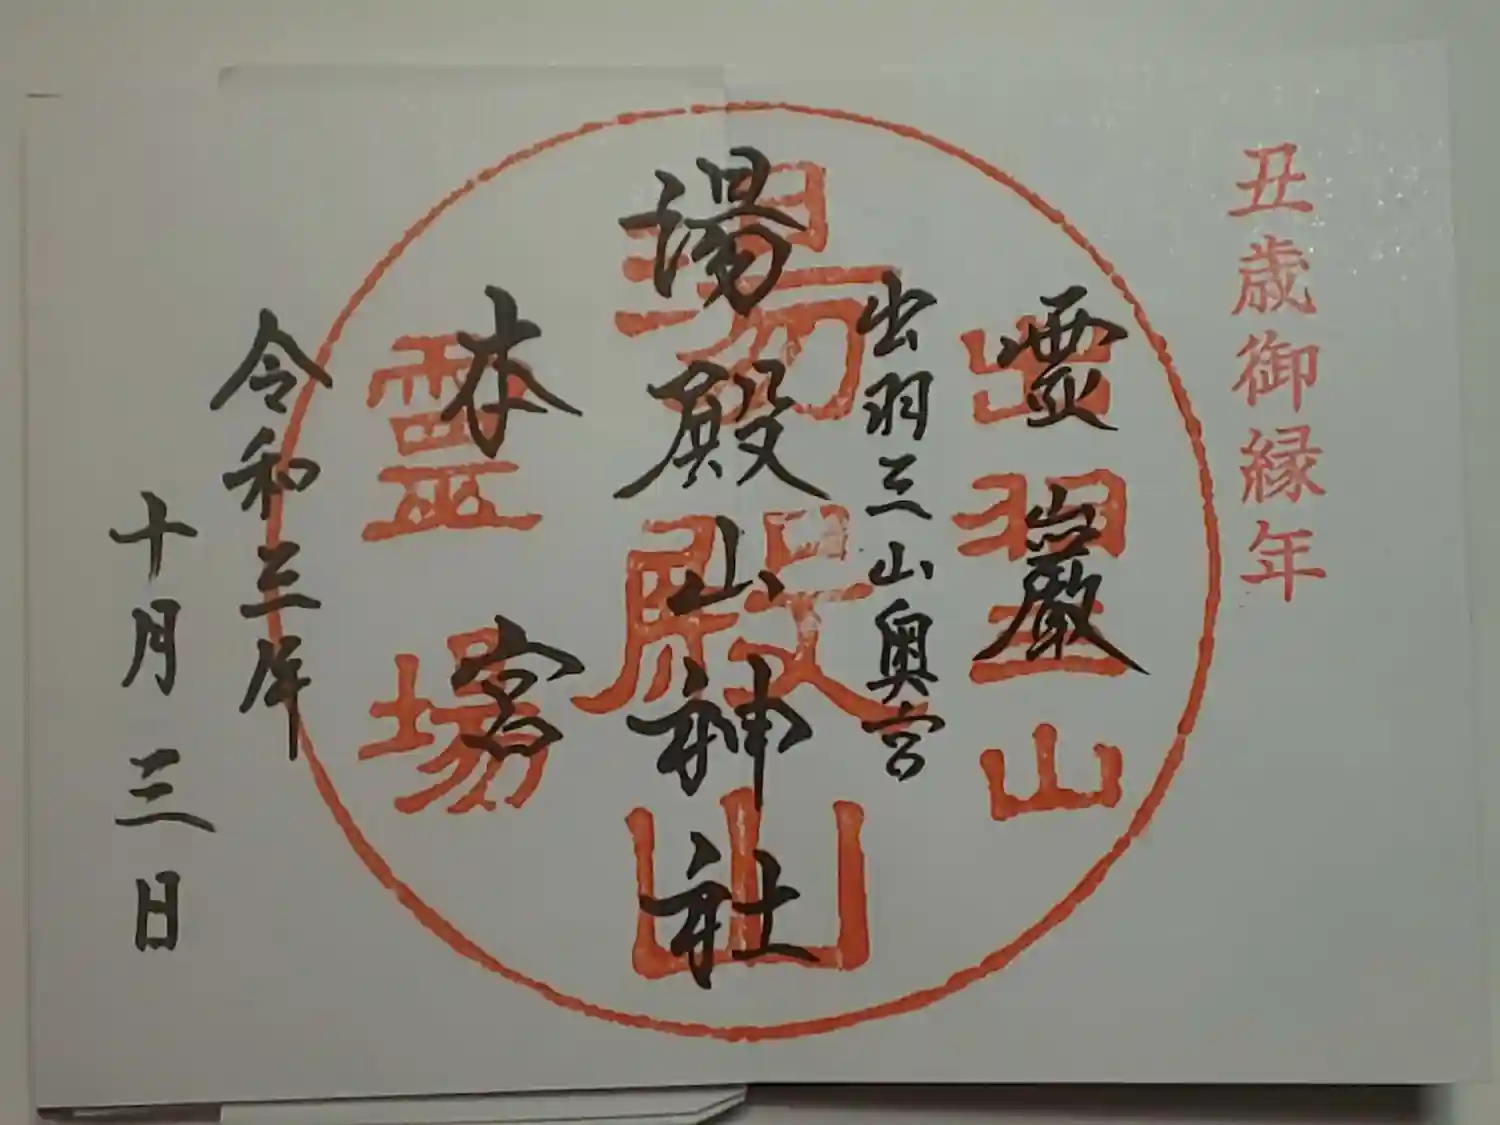 丑歳御縁年
霊巌
出羽三山
出羽三山奥宮
湯殿山神社
湯殿山
本宮
霊場
令和三年
十月三日